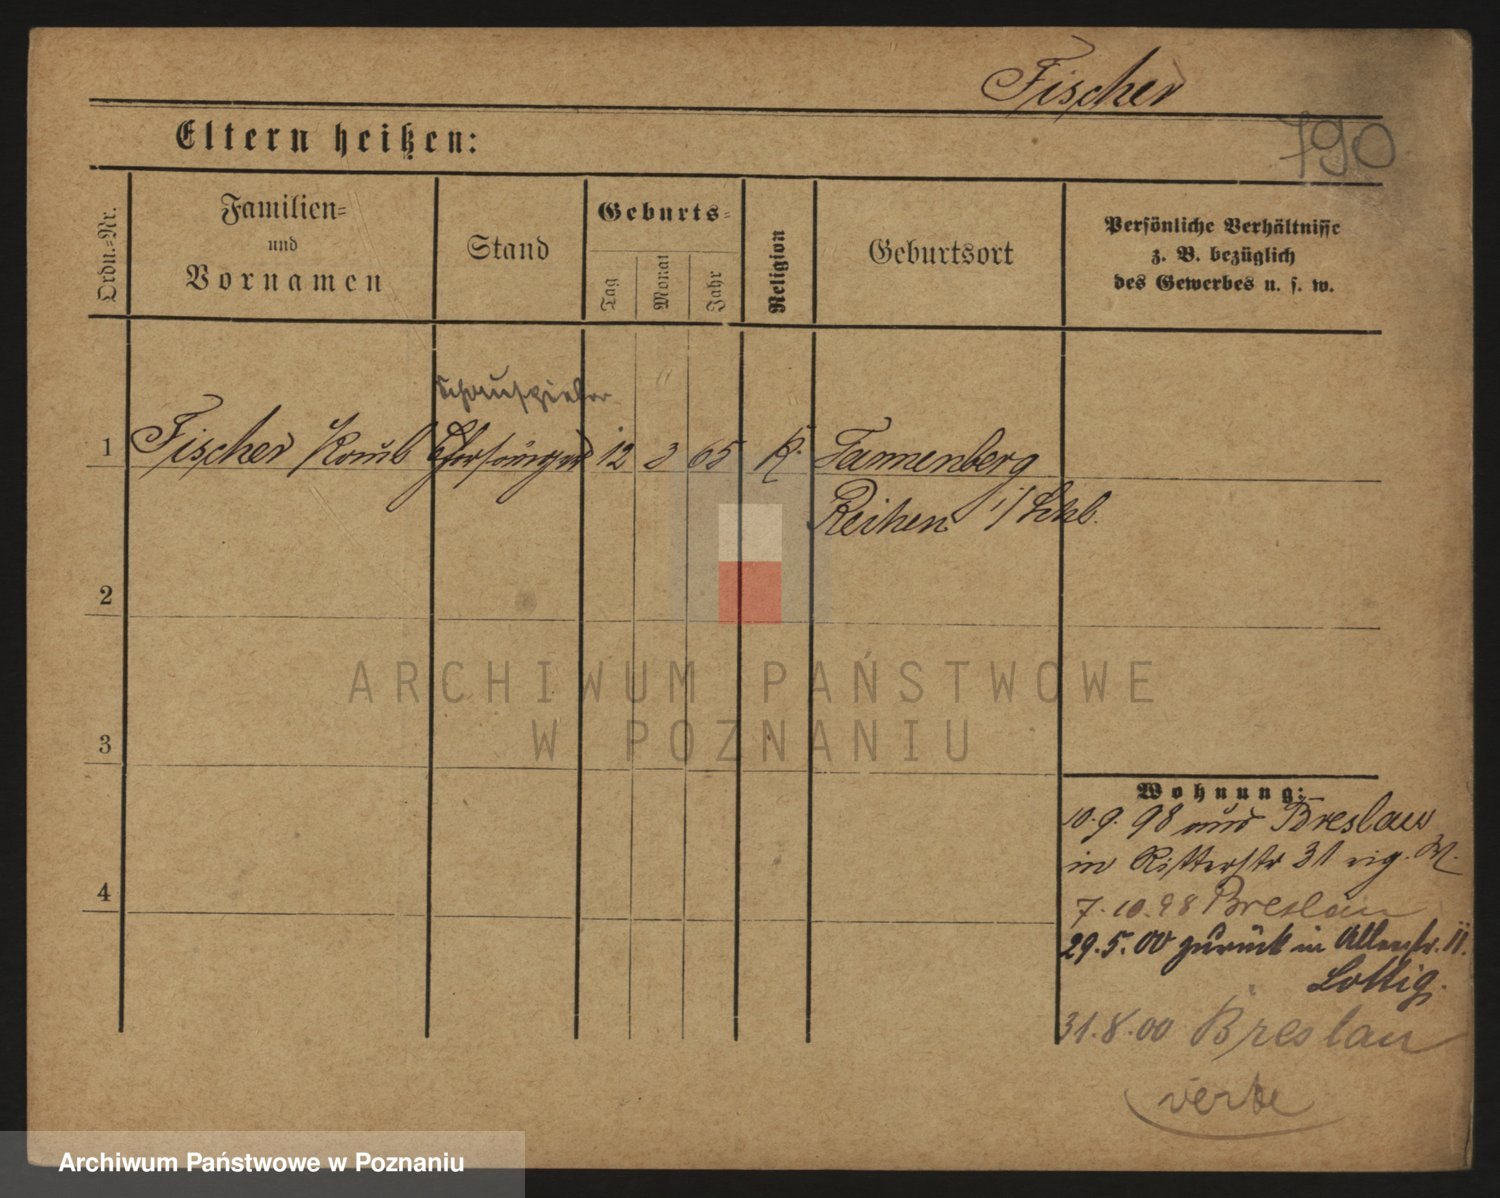 Fischer
790
Eltern heißen:
Ordn.=Nr.
Familien=
und
Vornamen
Stand
Geburts=
Tag
Monat
Jahr
Religion
Geburtsort
Persönliche Verhältnisse
z. B. bezüglich
des Gewerbes u. s. w.
Schauspieler
1 Fischer Chorsänger 12 3 65 K. Tannenberg
Reihen i/
2
3
4
ARCHIWUM PAŃSTWOWE
W POZNANIU
Wohnung:
10.9.98 aus Breslau
in Ritterstr 31
7.10.98 Breslau
29.5.00 zurück in
31.8.00 Breslau
Archiwum Państwowe w Poznaniu